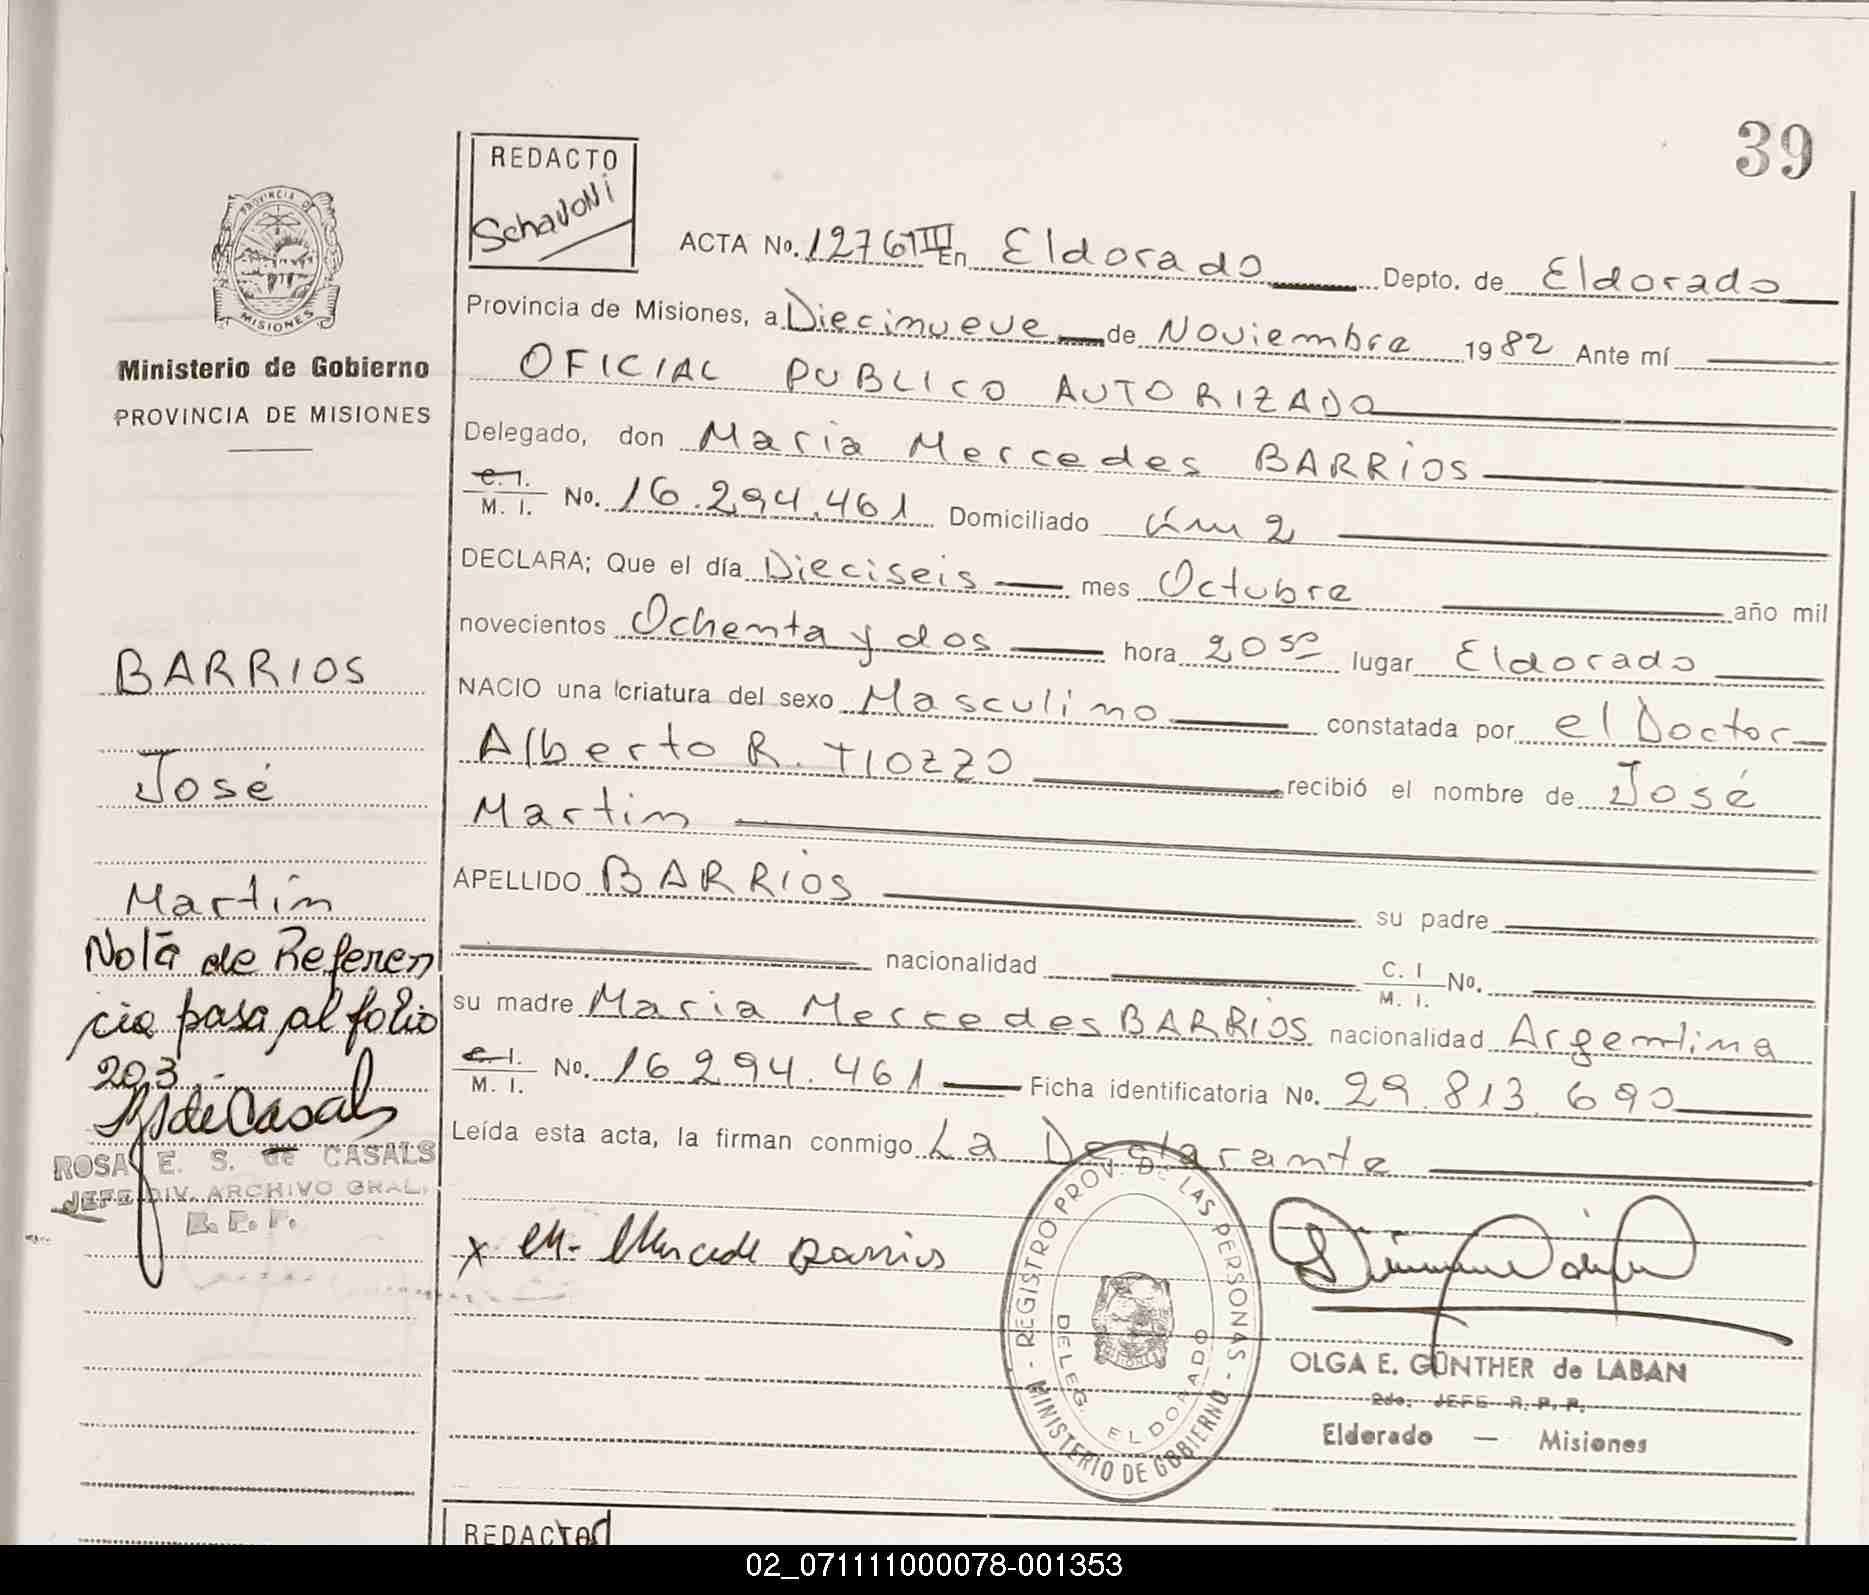 39
REDACTO
Schavoni
PROVINCIA DE
MISIONES
Ministerio de Gobierno
PROVINCIA DE MISIONES
ACTA No. 1276 TIII En Eldorado Depto. de Eldorado
Provincia de Misiones, a Diecinueve de Noviembre 1982 Ante mí
OFICIAL PUBLICO AUTORIZADO
Delegado, don Maria Mercedes BARRIOS
C. I.
M. I. No. 16.294.461 Domiciliado Km 2
DECLARA; Que el día Dieciseis mes Octubre año mil
novecientos Ochenta y dos hora 20 50 lugar Eldorado
NACIO una criatura del sexo Masculino constatada por el Doctor
Alberto R. TIOZZO recibió el nombre de José
Martin
APELLIDO BARRIOS su padre
nacionalidad C. I
M. I. No.
su madre Maria Mercedes BARRIOS nacionalidad Argentina
C. I.
M. I. No. 16.294.461 Ficha identificatoria No. 29.813.690
Leída esta acta, la firman conmigo La Declarante
BARRIOS
José
Martín
Nota de Referen
cia pasa al folio
203.-
RdeCasals
ROSA E. S. de CASALS
JEFE DIV. ARCHIVO GRAL.
R. P. P.
x M. Mercede Barrios
REGISTRO PROV. DE LAS PERSONAS - MINISTERIO DE GOBIERNO -
DELEG. ELDORADO
OLGA E. GÜNTHER de LABAN
2do. JEFE R. P. P.
Eldorado — Misiones
REDACTO
02_071111000078-001353